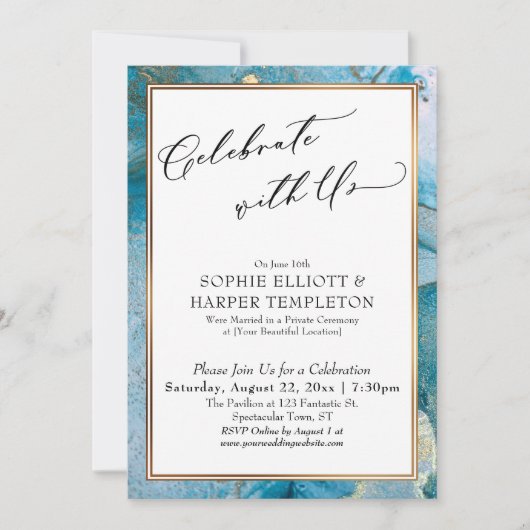 Celebrate
with Us
On June 16th
SOPHIE ELLIOTT &
HARPER TEMPLETON
Were Married in a Private Ceremony
at [Your Beautiful Location]
Please Join Us for a Celebration
Saturday, August 22, 20xx | 7:30pm
The Pavilion at 123 Fantastic St.
Spectacular Town, ST
RSVP Online by August 1 at
www.yourweddingwebsite.com